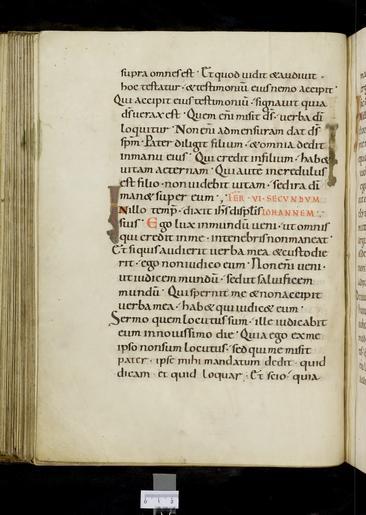 supra omnes est · Et quod uidit & audiuit ·
hoc testatur · & testimoniū eius nemo accipit ·
Qui accipit eius testimoniū · signauit quia
d̄s uerax est · Quem enī misit d̄s · uerba dī
loquitur · Non enī ad mensuram dat d̄s
sp̄m · Pater diligit filium · & omnia dedit
in manu eius · Qui credit in filium · hab&
uitam aeternam · Qui aut̄ incredulus
est filio · non uidebit uitam · sed ira dī
man& super eum · FER · VI · SECVNDVM
IOHANNEM ·
In illo temp̄ · dixit ih̄s discipulis
suis · Ego lux in mundum ueni · ut omnis
qui credit in me · in tenebris non maneat ·
Et si quis audierit uerba mea & custodie
rit · ego non iudico eum · Non enī ueni ·
ut iudicem mundū · sed ut saluificem
mundū · Qui spernit me & non accipit
uerba mea · hab& qui iudic& eum ·
Sermo quem locutus sum · ille iudicabit
eum in nouissimo die · Quia ego ex me
ipso non sum locutus · sed qui me misit
pater · ipse mihi mandatum dedit · quid
dicam · et quid loquar · Et scio quia